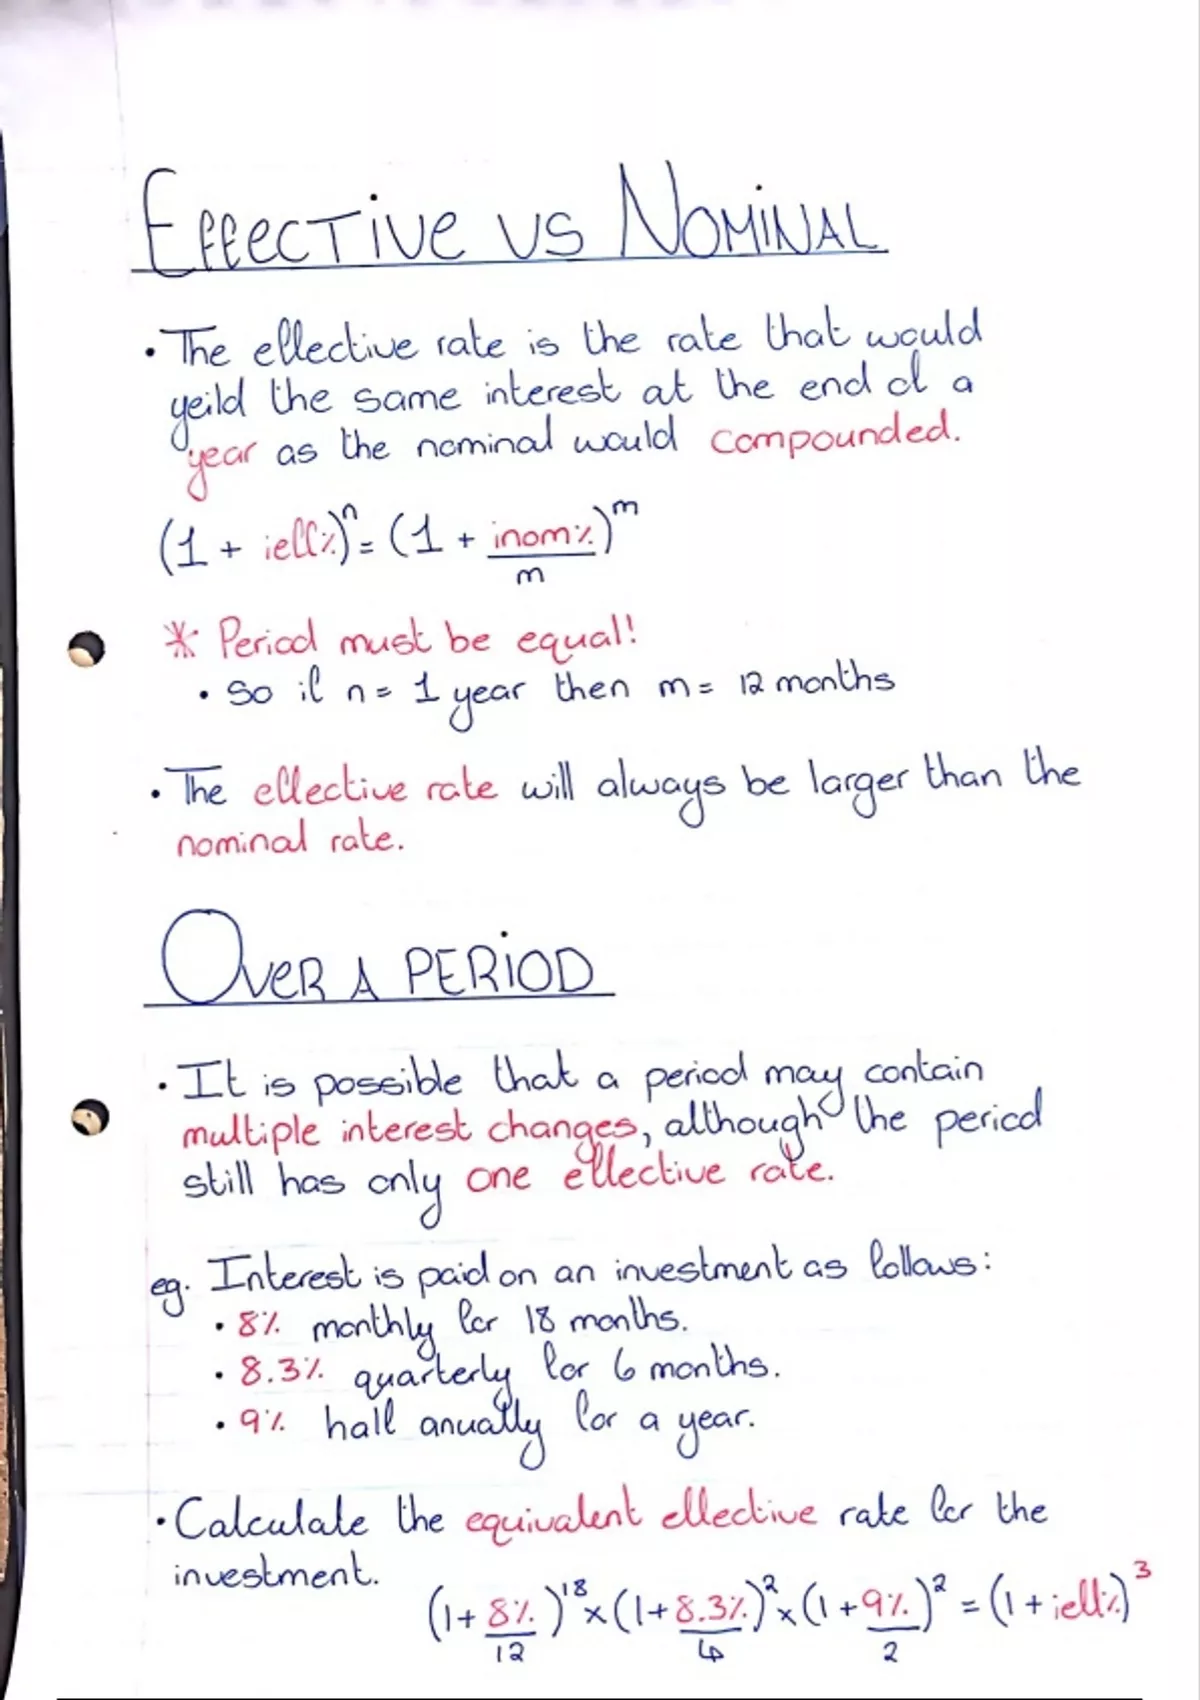 Effective vs Nominal
• The effective rate is the rate that would
yeild the same interest at the end of a
year as the nominal would compounded.
(1 + ieff%)ⁿ = (1 + inom%/m)ᵐ
* Period must be equal!
• So if n = 1 year then m = 12 months
• The effective rate will always be larger than the
nominal rate.
Over a Period
• It is possible that a period may contain
multiple interest changes, although the period
still has only one effective rate.
eg. Interest is paid on an investment as follows:
• 8% monthly for 18 months.
• 8.3% quarterly for 6 months.
• 9% half anually for a year.
• Calculate the equivalent effective rate for the
investment.
(1 + 8%/12)¹⁸ × (1 + 8.3%/4)² × (1 + 9%/2)² = (1 + ieff%)³